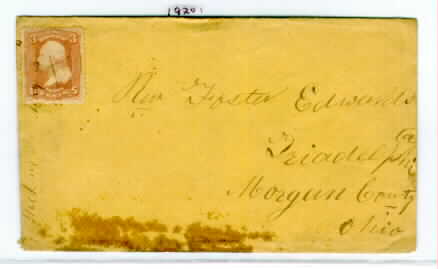 1920
3 3
Rev Foster Edwards
Triadelphia
Morgan County
Ohio